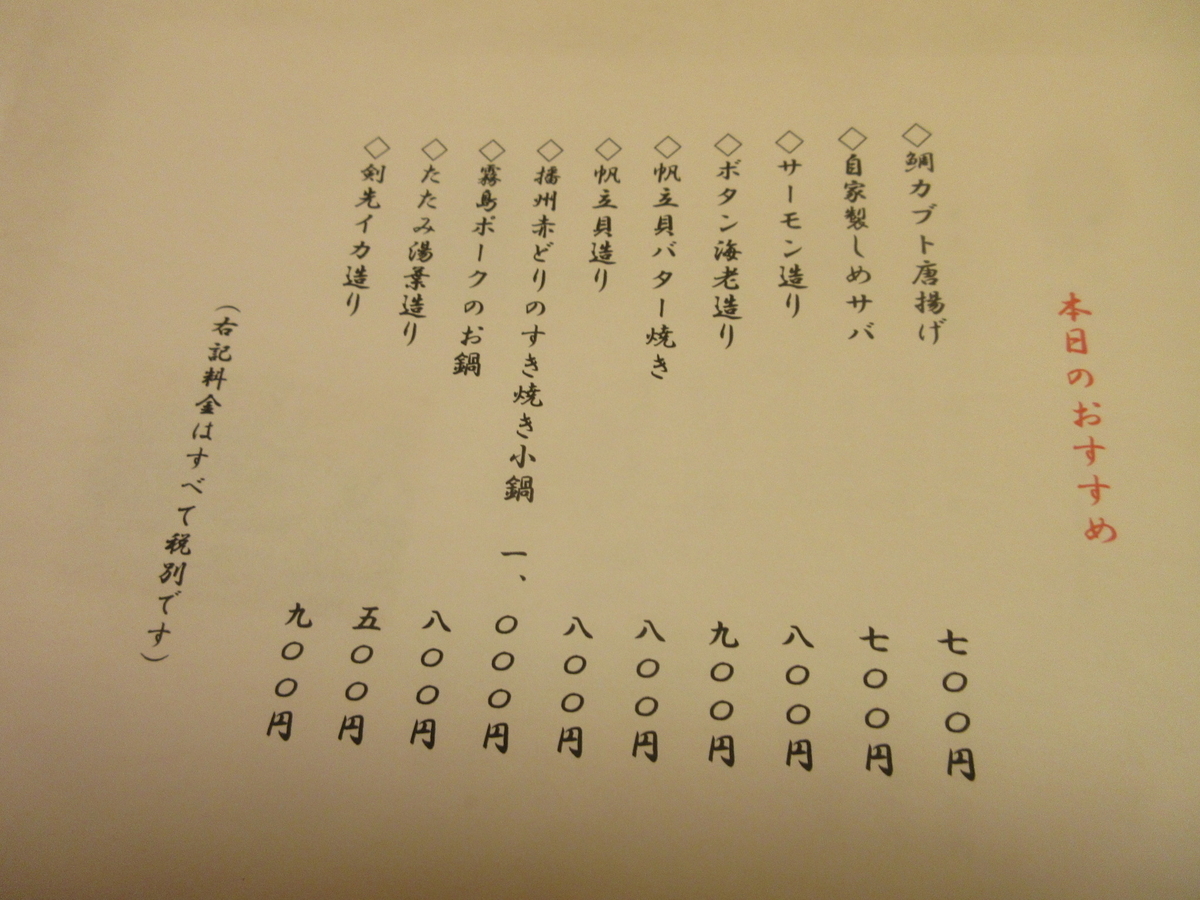 本日のおすすめ
◇鯛カブト唐揚げ 七〇〇円
◇自家製しめサバ 七〇〇円
◇サーモン造り 八〇〇円
◇ボタン海老造り 九〇〇円
◇帆立貝バター焼き 八〇〇円
◇帆立貝造り 八〇〇円
◇播州赤どりのすき焼き小鍋 一、〇〇〇円
◇霧島ポークのお鍋 八〇〇円
◇たたみ湯葉造り 五〇〇円
◇剣先イカ造り 九〇〇円
（右記料金はすべて税別です）